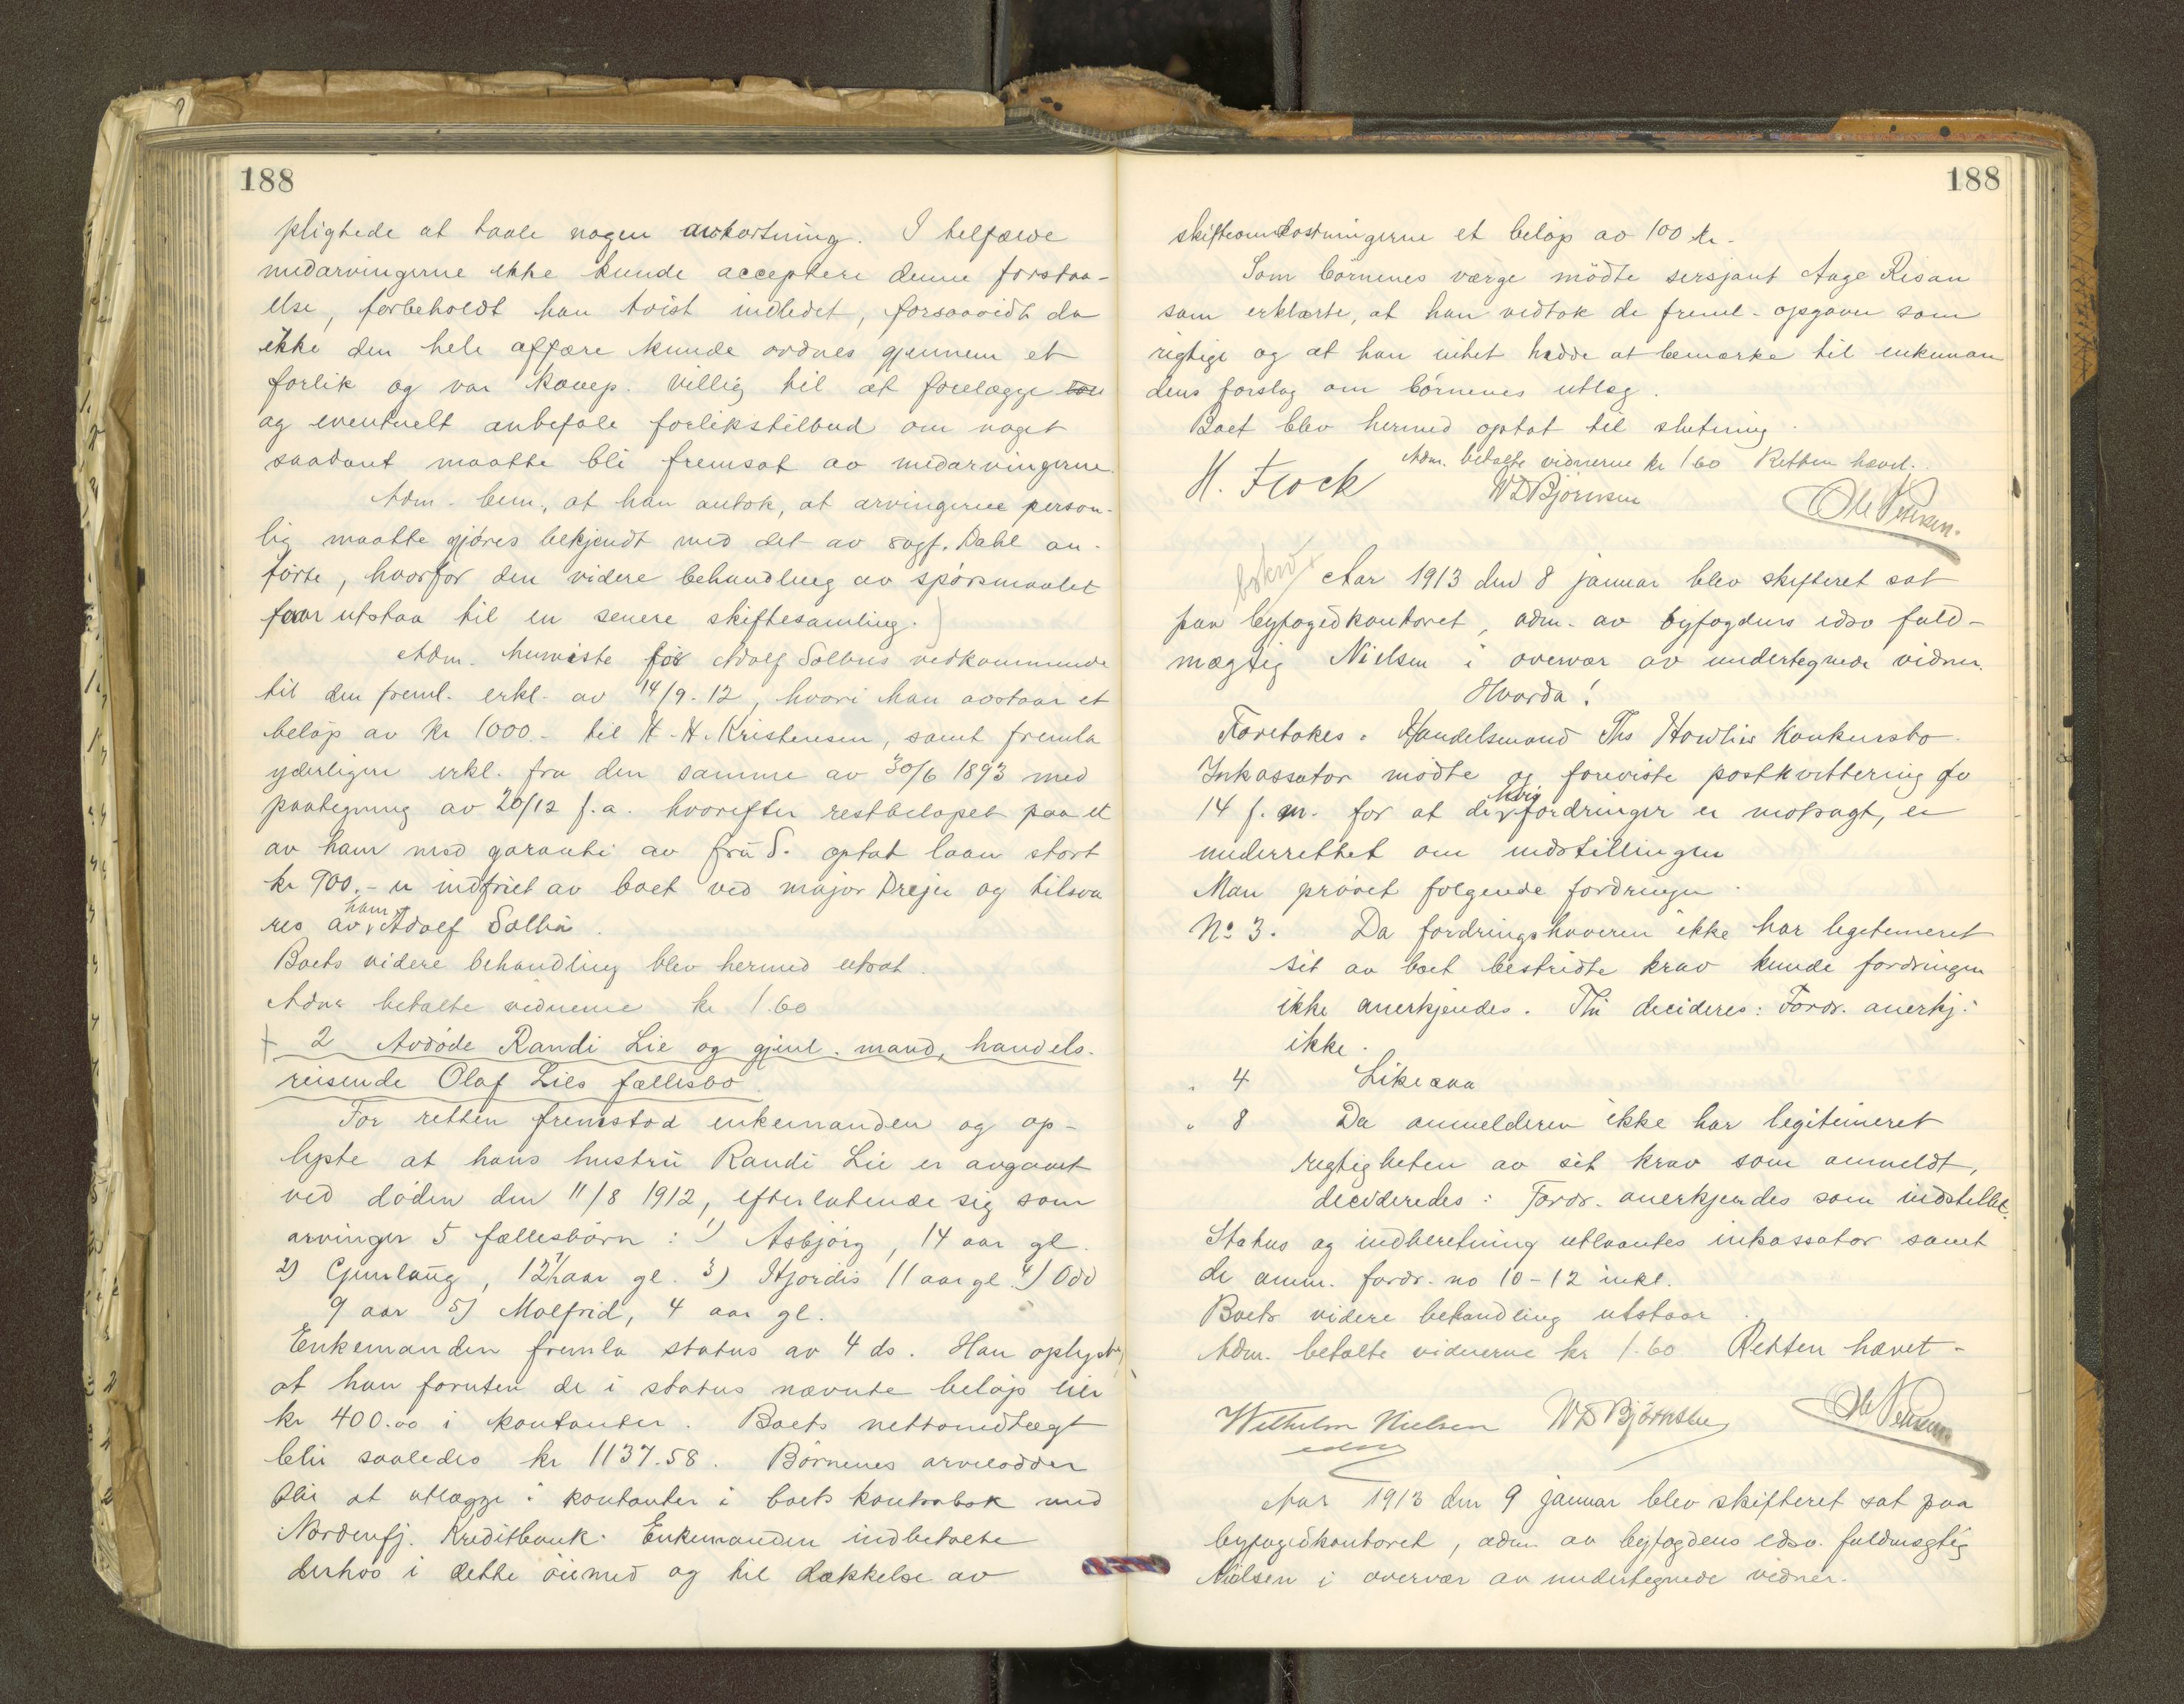 188
pligtede at taale nogen avkortning. I tilfælde
medarvingerne ikke kunde acceptere denne forstaa-
else, forbeholdt han tvist indledet, forsaavidt da
ikke den hele affære kunde ordnes gjennem et
forlik og var komp. villig til at forelægge
og eventuelt anbefale forlikstilbud om noget
saadant maatte bli fremsat av medarvingerne.
Adm. bem., at han antok, at arvingerne person-
lig maatte gjøres bekjendt med det av sagf. Dahl an-
førte, hvorfor den videre behandling av spørsmaalet
faar utstaa til en senere skiftesamling.)
Adm. henviste for Adolf Solbus vedkommende
til den freml. erkl. av 14/9-12, hvori han avstaar et
beløp av kr 1000.- til H. H. Kristensen, samt fremla
yderligere erkl. fra den samme av 30/6 1893 med
paategning av 20/12 f.a. hvorefter restbeløpet paa et
av ham med garanti av fru S. optat laan stort
kr 900.- er indfriet av boet ved major Dreyer og tilsva
res av ham Adolf Solbu.
Boets videre behandling blev hermed utsat.
Adm betalte vidnerne kr 1.60
+ 2 Avdøde Randi Lie og gjenl. mand, handels-
reisende Olaf Lies fællesbo.
For retten fremstod enkemanden og op-
lyste at hans hustru Randi Lie er avgaaet
ved døden den 11/8 1912, efterlatende sig som
arvinger 5 fællesbørn: 1) Asbjørg, 14 aar gl.
2) Gunlaug, 12½ aar gl. 3) Hjørdis 11 aar gl. 4) Odd
9 aar 5) Molfrid, 4 aar gl.
Enkemanden fremla status av 4 ds. Han oplyste
at han foruten de i status nævnte beløp eier
kr 400.00 i kontanter. Boets nettoindtægt
blir saaledes kr 1137.58. Børnenes arvelodder
blir at utlægge i kontanter i boets kontrabok med
Nordenfj. Kreditbank. Enkemanden indbetalte
derhos i dette øiemed og til dækkelse av
188
skifteomkostningerne et beløp av 100 kr.-
Som børnenes værge mødte sersjant Aage Risan
som erklærte, at han vedtok de freml. opgaver som
rigtige og at han intet hadde at bemærke til enkeman
dens forslag om børnenes utlæg.
Boet blev hermed optat til slutning.
Adm. betalte vidnerne kr 1.60 Retten hævet.
H. Flock W D Bjørnsen Ole Petersen.
Aar 1913 den 8 januar blev skifteret sat
paa byfogedkontoret, adm. av byfogdens edsv fuld-
mægtig Nielsen i overvær av undertegnede vidner.
Hvorda!
Foretokes: Handelsmand Ths Howlies Konkursbo.
Inkassator mødte og foreviste postkvittering fv
14 f. m. for at de, hvis fordringer er motsagt, er
underrettet om indstillingen
Man prøvet følgende fordringer.
No 3. Da fordringshaveren ikke har legitimeret
sit av boet bestridte krav kunde fordringen
ikke anerkjendes. Thi decideres: Fordr. anerkj:
ikke.
" 4 Likesaa
" 8 Da anmelderen ikke har legitimeret
rigtigheten av sit krav som anmeldt,
decideredes: Fordr. anerkjendes som indstillet.
Status og indberetning utlaantes inkassator samt
de anm. fordr. no 10-12 inkl.
Boets videre behandling utstaar.
Adm. betalte vidnerne kr 1.60 Retten hævet.-
Wilhelm Nielsen W D Bjørnsen Ole Petersen
edsv
Aar 1913 den 9 januar blev skifteret sat paa
byfogedkontoret, adm. av byfogdens edsv. fuldmægtig
Nielsen i overvær av undertegnede vidner.